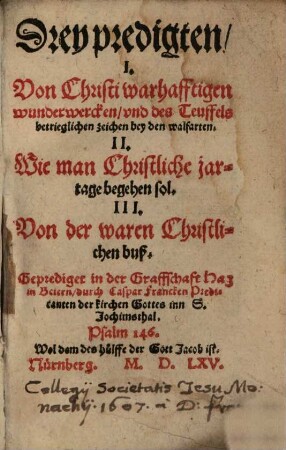 Drey predigten/
I.
Von Christi warhafftigen
wunderwercken/vnd des Teuffels
betrieglichen zeichen bey den walfarten.
II.
Wie man Christliche jar-
tage begehen sol.
III.
Von der waren Christli-
chen buß.
Geprediget in der Graffschafft Hag
in Beiern/durch Caspar Francken Predi-
canten der kirchen Gottes inn S.
Jochimsthal.
Psalm 146.
Wol dem des hülffe der Gott Jacob ist.
Nürnberg. M. D. LXV.
Collegij Societatis Jesu Mo-
nachij 1607. D: